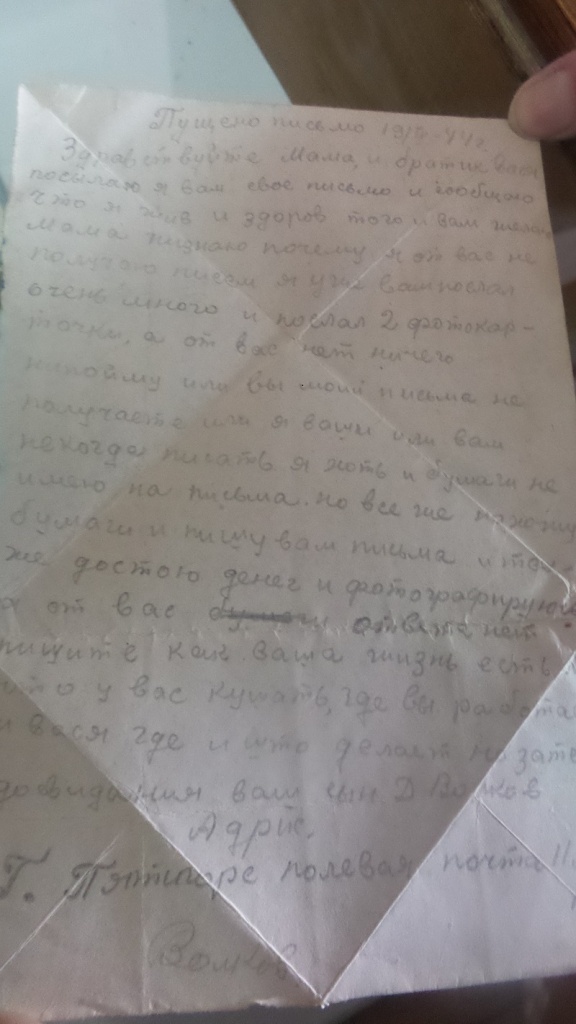 Пущено письмо 19 44 г.
Здравствуйте Мама, и братик Вася
посылаю я вам свое письмо и сообщаю
что я жив и здоров того и вам желаю
Мама низнаю почему я от вас не
получаю писем я уже вам послал
очень много и послал 2 фотокар-
точки, а от вас нет ничего
нипойму или вы мои письма не
получаете или я ваши или вам
некогда писать я хоть и бумаги не
имею на письма. но все же нахожу
бумаги и пишу вам письма и так-
же достою денег и фотографируюсь
а от вас ответа нет
пишите как ваша жизнь есть
што у вас кушать, где вы работае
и вася где и што делает низате
довидания ваш сын Д Волков
Адрис.
Г. Пятигорс полевая почта
Волков